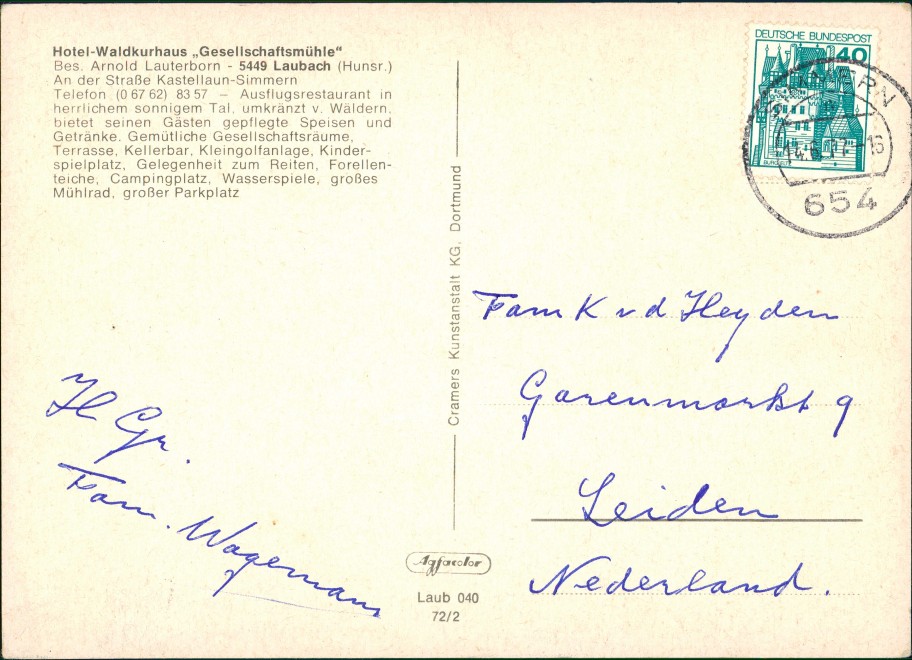 Hotel-Waldkurhaus „Gesellschaftsmühle“
Bes. Arnold Lauterborn - 5449 Laubach (Hunsr.)
An der Straße Kastellaun-Simmern
Telefon (0 67 62) 83 57 – Ausflugsrestaurant in
herrlichem sonnigem Tal, umkränzt v. Wäldern,
bietet seinen Gästen gepflegte Speisen und
Getränke. Gemütliche Gesellschaftsräume,
Terrasse, Kellerbar, Kleingolfanlage, Kinder-
spielplatz, Gelegenheit zum Reiten, Forellen-
teiche, Campingplatz, Wasserspiele, großes
Mühlrad, großer Parkplatz
Hl Gr.
Fam. Wagemans
Cramers Kunstanstalt KG, Dortmund
Agfacolor
Laub 040
72/2
DEUTSCHE BUNDESPOST
40
654
Fam K v d Heyden
Garenmarkt 9
Leiden
Nederland.